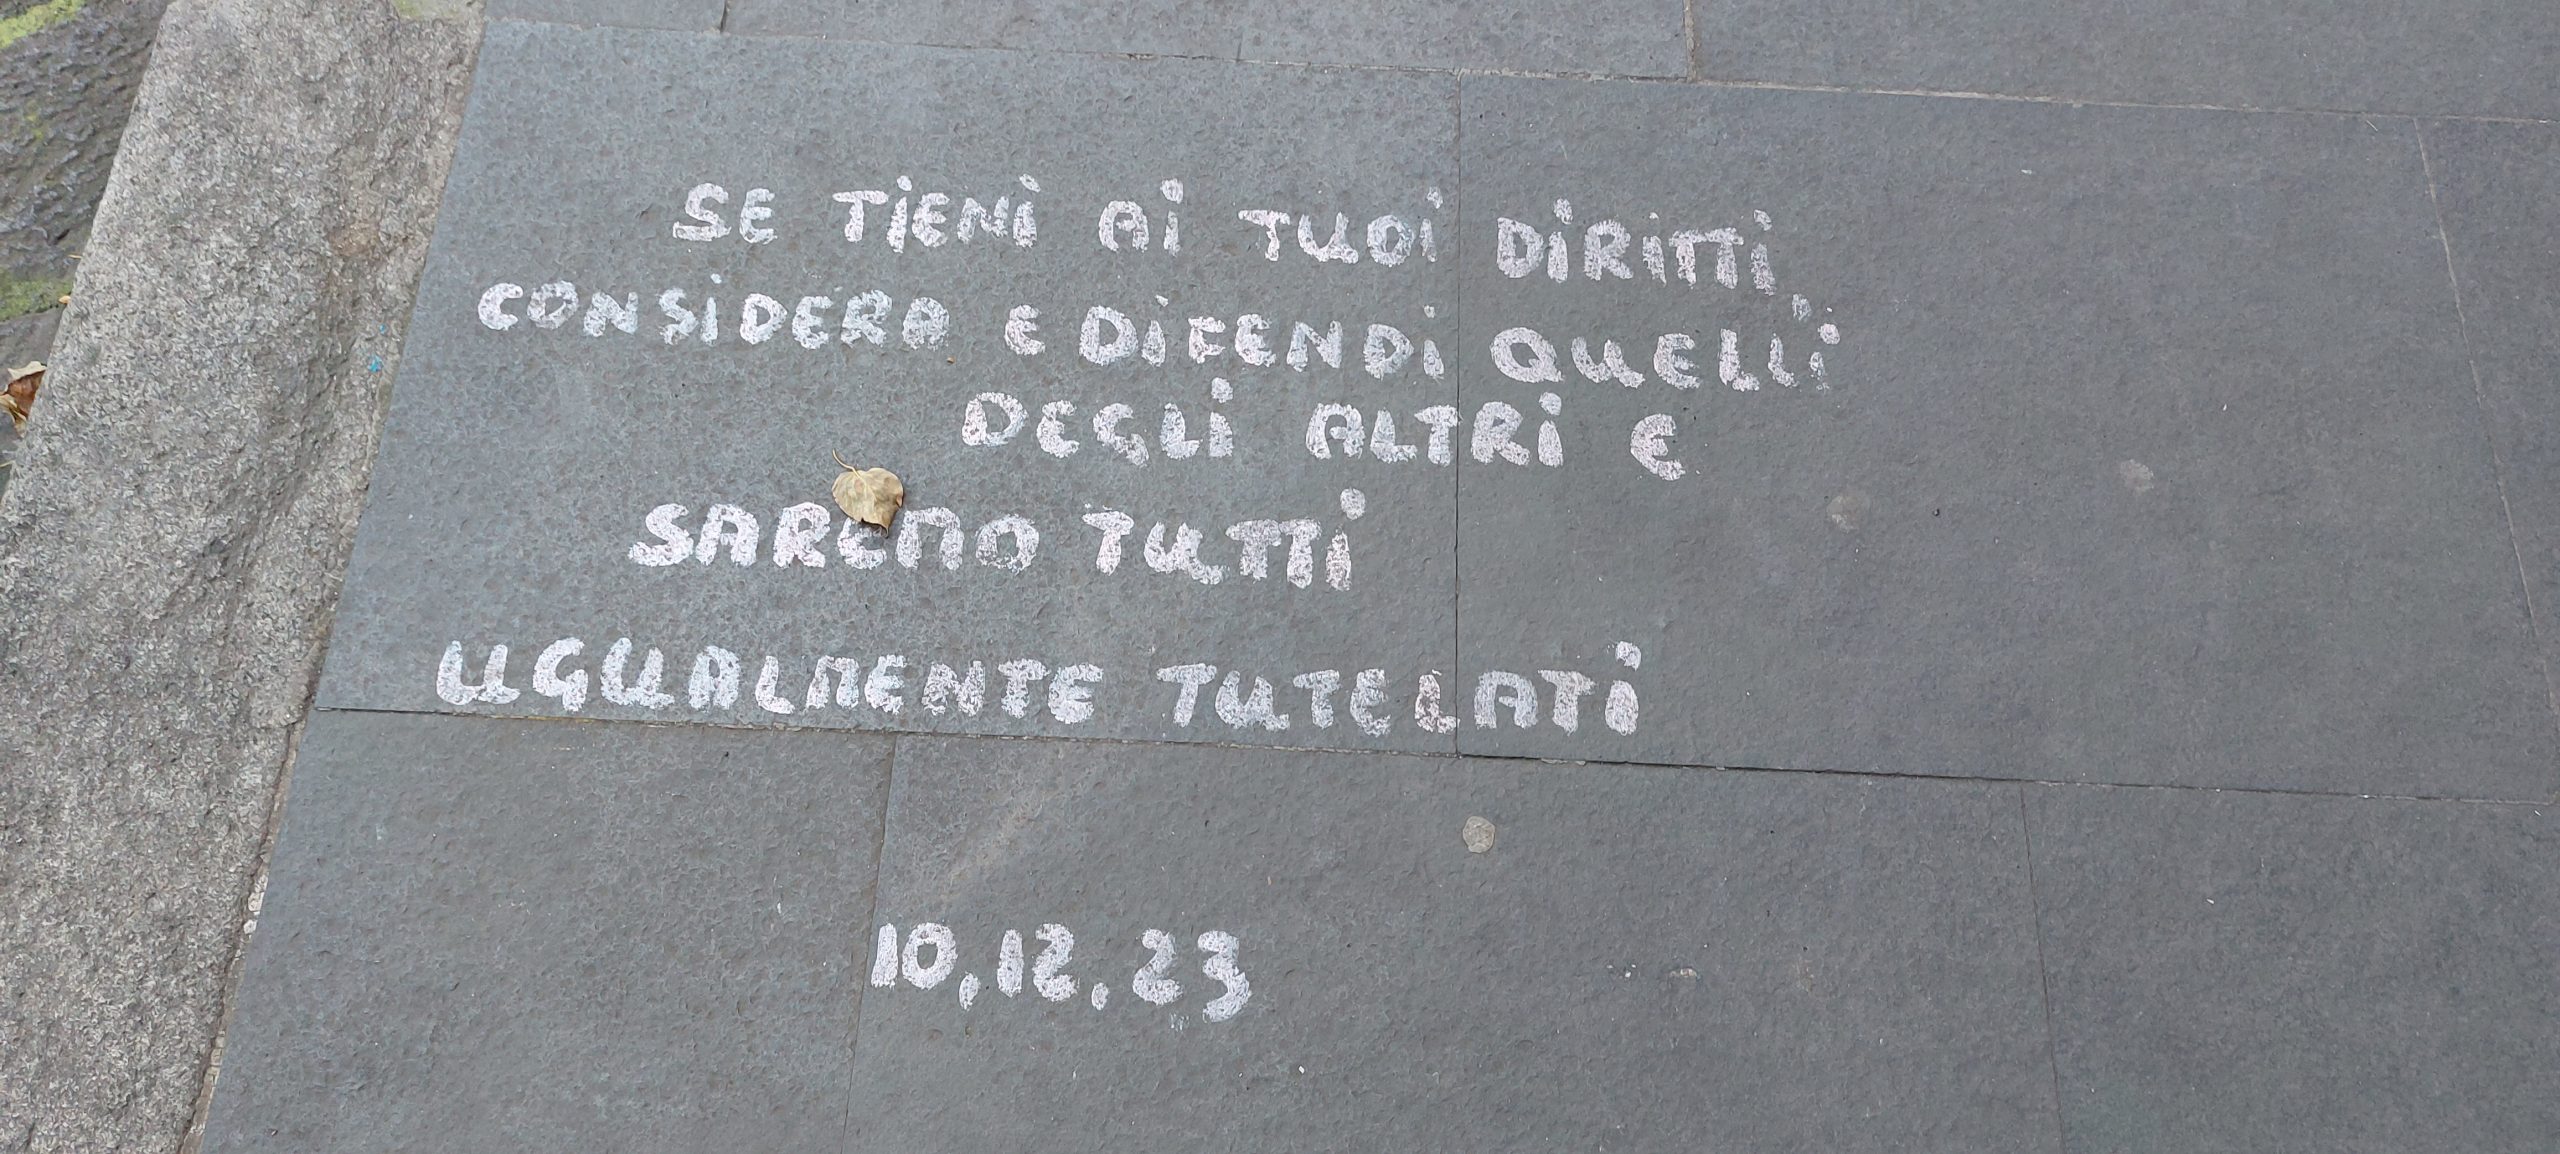 SE TIENI AI TUOI DIRITTI,
CONSIDERA E DIFENDI QUELLI
DEGLI ALTRI E
SAREMO TUTTI
UGUALMENTE TUTELATI
10.12.23